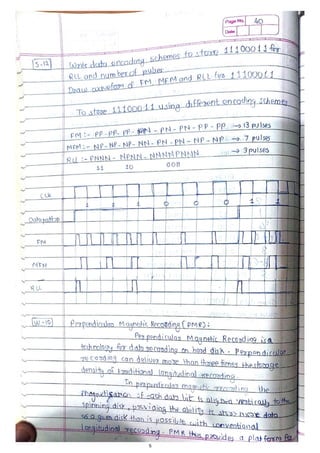 Page No. 40
Date
S-12 Write data encoding schemes to store 11100011 for
RLL and number of pulses
Draw waveform of FM, MFM and RLL for 11100011
To store 11100011 using different encoding schemes
FM :- PP - PP - PP - PN - PN - PN - PP - PP → 13 pulses
MFM :- NP - NP - NP - NN - PN - PN - NP - NP → 7 pulses
RLL :- PNNN - NPNN - NNNNPNNN → 3 pulses
11 10 0011
CLK
1 1 1 0 0 0 1 1
Data pattern
FM
MFM
RLL
W-10 Perpendicular Magnetic Recording [PMR] :
Perpendicular Magnetic Recording is a
technology for data recording on hard disk. Perpendicular
recording can deliver more than three times the storage
density of traditional longitudinal recording.
In perpendicular magnetic recording the
magnetisation of each data bit is aligned vertically to the
spinning disk, providing the ability to store more data
on a given disk than is possible with conventional
longitudinal recording. PMR thus provides a platform for
9